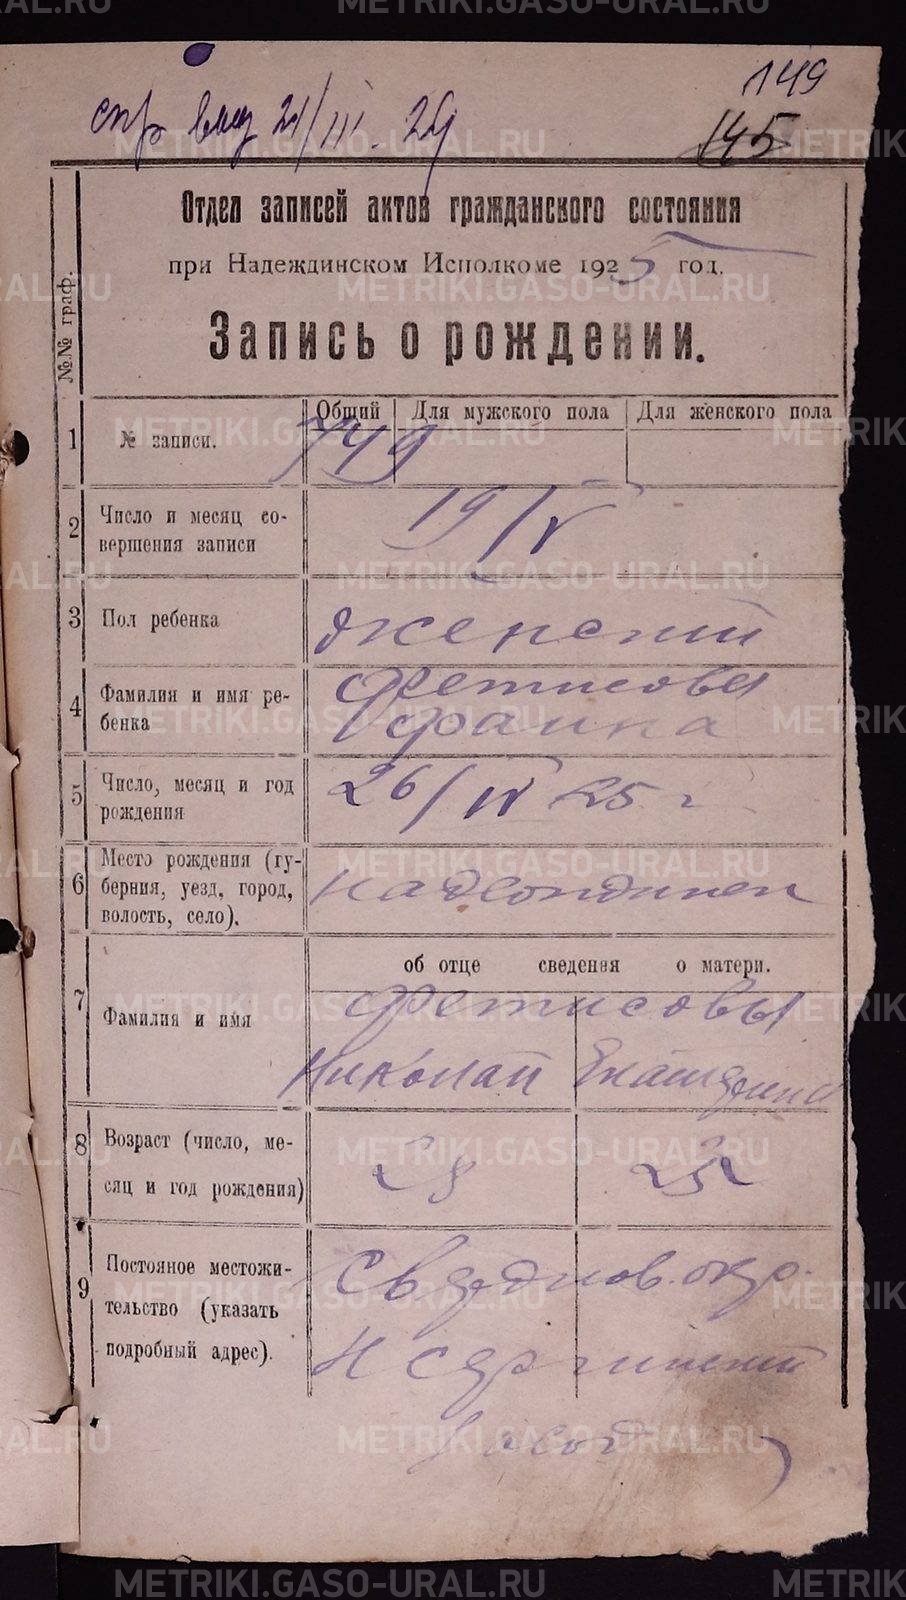 149
спр выд 21/III. 29
145
Отдел записей актов гражданского состояния
при Надеждинском Исполкоме 1925 год.
Запись о рождении.
№№ граф.
Общий Для мужского пола Для женского пола
1 № записи. 749
2 Число и месяц со-
вершения записи 19/V
3 Пол ребенка женский
4 Фамилия и имя ре-
бенка Фетисова
Фаина
5 Число, месяц и год
рождения 26/IV 25 г
6 Место рождения (гу-
берния, уезд, город,
волость, село).
об отце сведения о матери.
7 Фамилия и имя Фетисовы
Николай Екатерина
8 Возраст (число, ме-
сяц и год рождения) 28
9 Постояное местожи-
тельство (указать
подробный адрес).
Свердлов. окр.
Н Сергинский
завод
METRIKI.GASO-URAL.RU